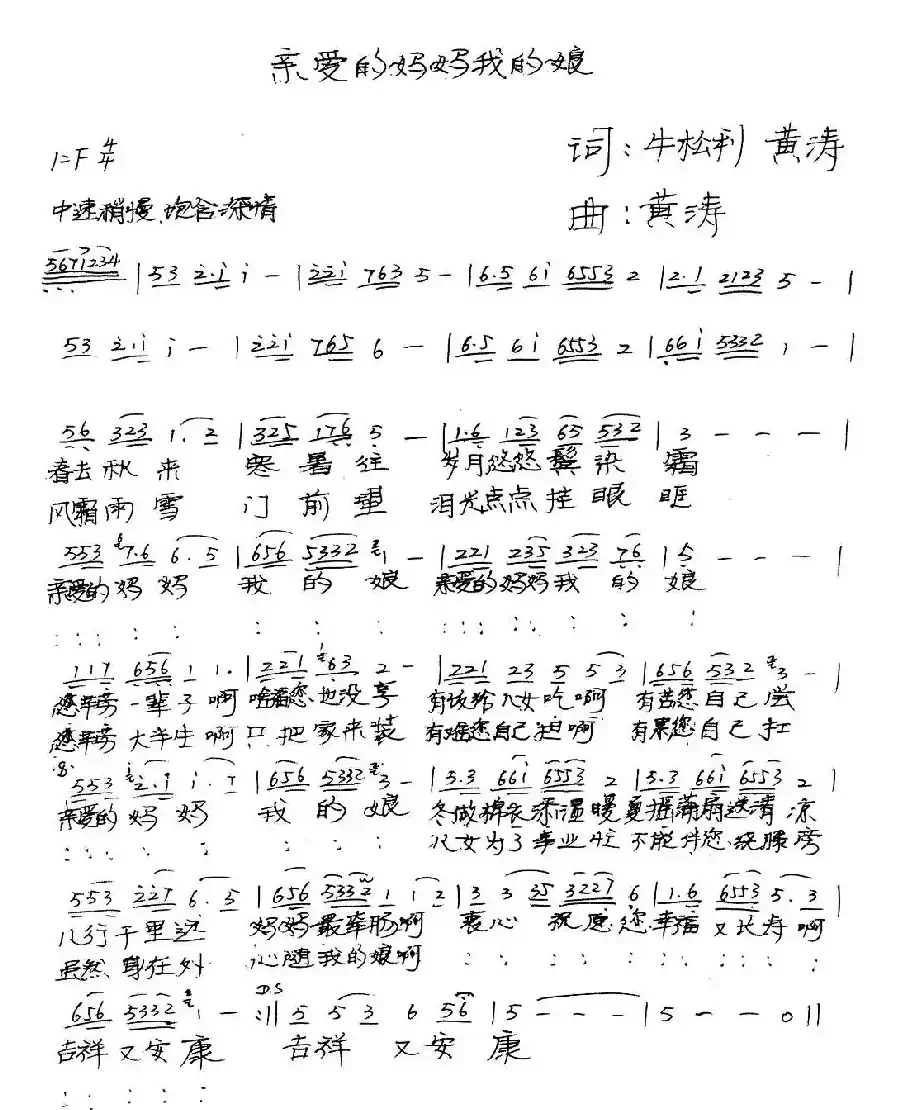 亲爱的妈妈我的娘
1=F 4/4
词：牛松利 黄涛
中速稍慢 饱含深情
曲：黄涛
5671234 | 53 2·1 1 - | 221 763 5 - | 6·5 61 6553 2 | 2·1 2123 5 - |
53 2·1 1 - | 221 765 6 - | 6·5 61 6553 2 | 661 5332 1 - |
56 323 1·2 | 325 176 5 - | 1·6 123 65 532 | 3 - - - |
春去秋来 寒暑往 岁月悠悠鬓染霜
风霜雨雪 门前望 泪光点点挂眼眶
553 7·6 6·5 | 656 5332 1 - | 221 235 323 76 | 5 - - - |
亲爱的妈妈 我的娘 亲爱的妈妈我的娘
: : : : : : : : : : : : : :
117 656 1 1· | 221 63 2 - | 221 23 5 53 | 656 532 3 - |
您辛劳一辈子啊 啥福您也没享 有该给儿女吃啊 有苦您自己尝
您辛劳大半生啊 只把家来装 有难您自己担啊 有累您自己扛
553 2·1 1·7 | 656 5332 3 - | 5·3 661 6553 2 | 5·3 661 6553 2 |
亲爱的妈妈 我的娘 冬做棉衣添温暖 夏摇蒲扇送清凉
: : : : : : : : 儿女为了事业忙 不能伴您绕膝旁
553 227 6·5 | 656 5332 1 12 | 3 3 35 3227 6 | 1·6 6553 5·3 |
儿行千里远 妈妈最牵肠啊 衷心祝愿您 幸福又长寿啊
虽然身在外 心随我的娘啊 : : : : : : : : : :
656 5332 1 - :|| D.S 5 5 3 6 56 | 5 - - - | 5 - - 0 ||
吉祥又安康 吉祥又安康
: : : : :